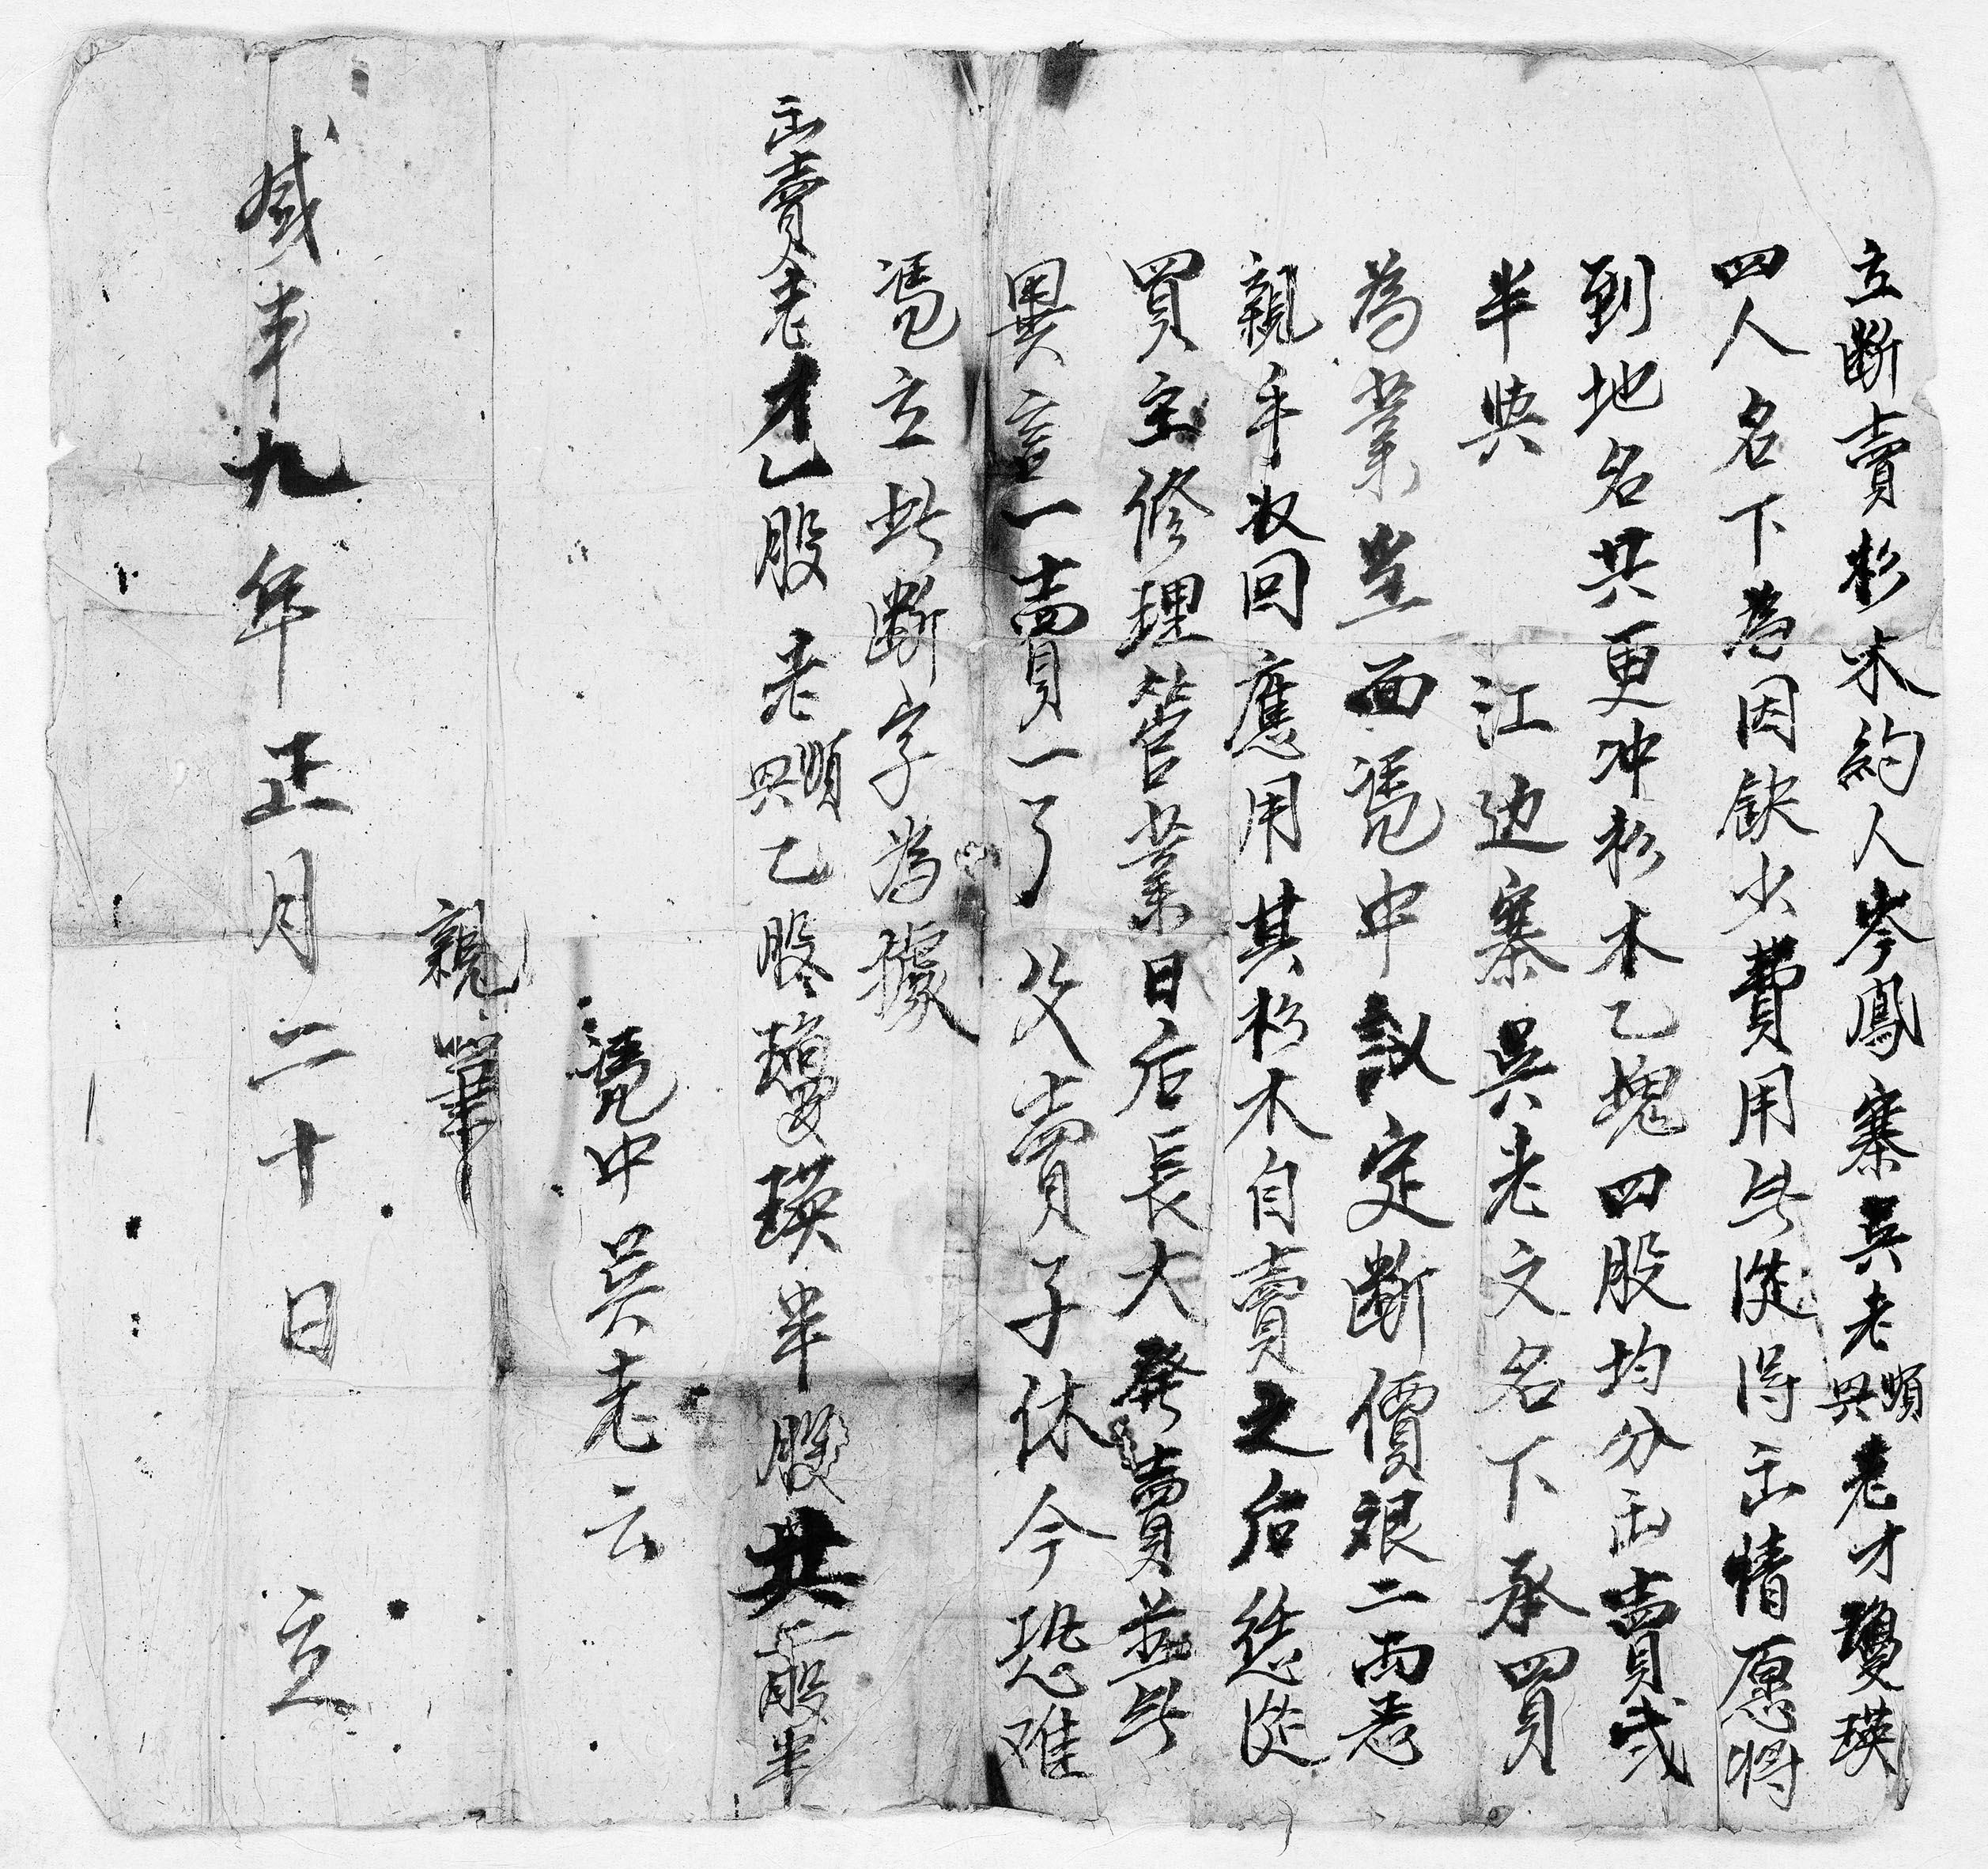 立斷賣杉木約人岑鳳寨吳老順興老才瓊瑛
四人名下為因缺少費用無從得出情愿將
到地名共更冲杉木乙塊四股均分出賣弍
半與 江边寨吳老文名下承買
為業當面憑中議定斷價艮二両悉
親手收回應用其杉木自賣之后憑從
買主修理管業日后長大發賣並無
異言一賣一了父賣子休今恐难
憑立此斷字為據
出賣老才乙股老順興乙股瓊瑛半股共二股半
憑中吳老云
親筆
咸丰九年正月二十日 立